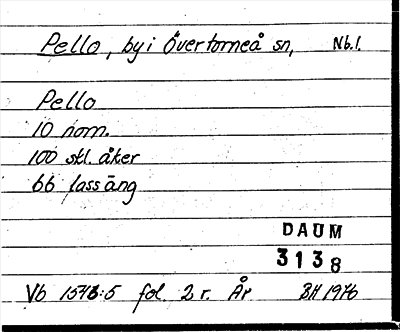 Pello, by i Övertorneå sn, Nb.l.
Pello
10 nom.
100 skl. åker
66 lass äng
DAUM
3138
Vb 1573:5 fol. 2 r. År BH 1976